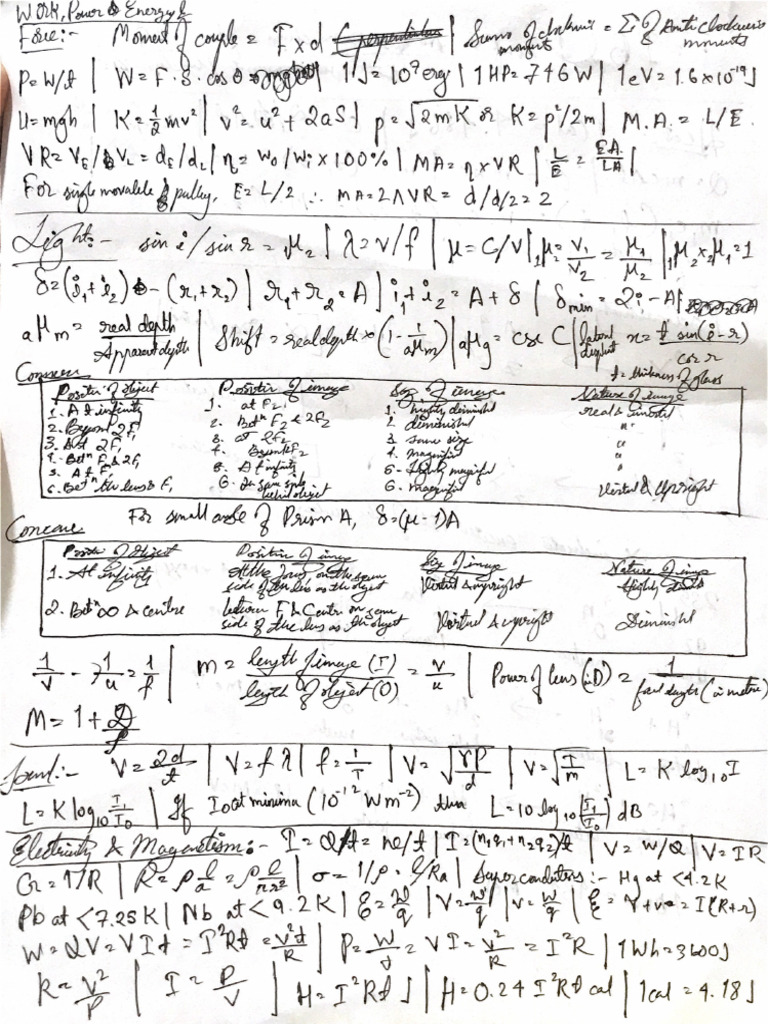 WORK, Power & Energy &
Force:- Moment of couple = F x d | Sums of clockwise moments = Σ of Anti clockwise moments
P=W/t | W = F·S·cos θ | 1J = 10⁷ erg | 1HP = 746W | 1eV = 1.6x10⁻¹⁹J
U=mgh | K=½mv² | v² = u² + 2aS | p=√2mK or K = p²/2m | M.A. = L/E.
VR = VE/VL = dE/dL | η = Wo/Wi x 100% | MA = η x VR | L/E = EA/LA |
For single movable pulley, E = L/2 ∴ MA=2 ∧ VR = d/d/2 = 2
Light:- sin i/sin r = ₁μ₂ | λ=v/f | μ = C/V | ₁μ₂ = V₁/V₂ = μ₁/μ₂ | ₁μ₂ x ₂μ₁ = 1
δ = (i₁+i₂) - (r₁+r₂) | r₁ + r₂ = A | i₁+i₂ = A + δ | δmin = 2i - A |
aμm = real depth/Apparent depth | Shift = real depth x (1 - 1/aμm) | aμg = csc C | lateral x = t sin(i-r)/cos r
t = thickness of glass
Position of object Position of image Size of image Nature of image
1. At infinity 1. at F₂ 1. highly diminished real & inverted
2. Beyond 2F₁ 2. Betⁿ F₂ & 2F₂ 2. diminished "
3. At 2F₁ 3. at 2F₂ 3. same size "
4. Betⁿ F₁ & 2F₁ 4. Beyond 2F₂ 4. magnified "
5. At F₁ 5. At infinity 5. Highly magnified "
6. Betⁿ the lens & F₁ 6. On same side behind object 6. magnified Virtual & Upright
Concave For small angle of Prism A, δ=(μ-1)A
Position of Object Position of image Size of image Nature of image
1. At infinity At the focus, on the same side of the lens as the object Virtual & upright Highly
2. Betⁿ ∞ & centre between F₁ & Centre on same side of the lens as the object Virtual & upright Diminished
1/v - 1/u = 1/f | m = length of image (I)/length of object (O) = v/u | Power of lens (in D) = 1/focal length (in metre)
M = 1 + D/f
Sound:- V = 2d/t | V = fλ | f = 1/T | V = √γP/d | V=√T/m | L = K log₁₀I
L = K log₁₀ I/I₀ | If I₀ at minima (10⁻¹² Wm⁻²) then L=10 log₁₀(I₁/I₀) dB
Electricity & Magnetism:- I = Q/t = ne/t | I = (n₁q₁+n₂q₂)/t | V = W/Q | V = IR
G = 1/R | R = ρ l/a = ρ l/πr² | σ = 1/ρ = l/Ra | Superconductors:- Hg at <4.2K
Pb at <7.25K | Nb at <9.2K | ε = W/q | V = W/q | v = w/q | ε = V+v = I(R+r)
W = QV = VIt = I²Rt = V²t/R | P = W/t = VI = V²/R = I²R | 1Wh=3600J
R = V²/P | I = P/V | H = I²Rt J | H = 0.24 I²Rt cal | 1cal = 4.18J